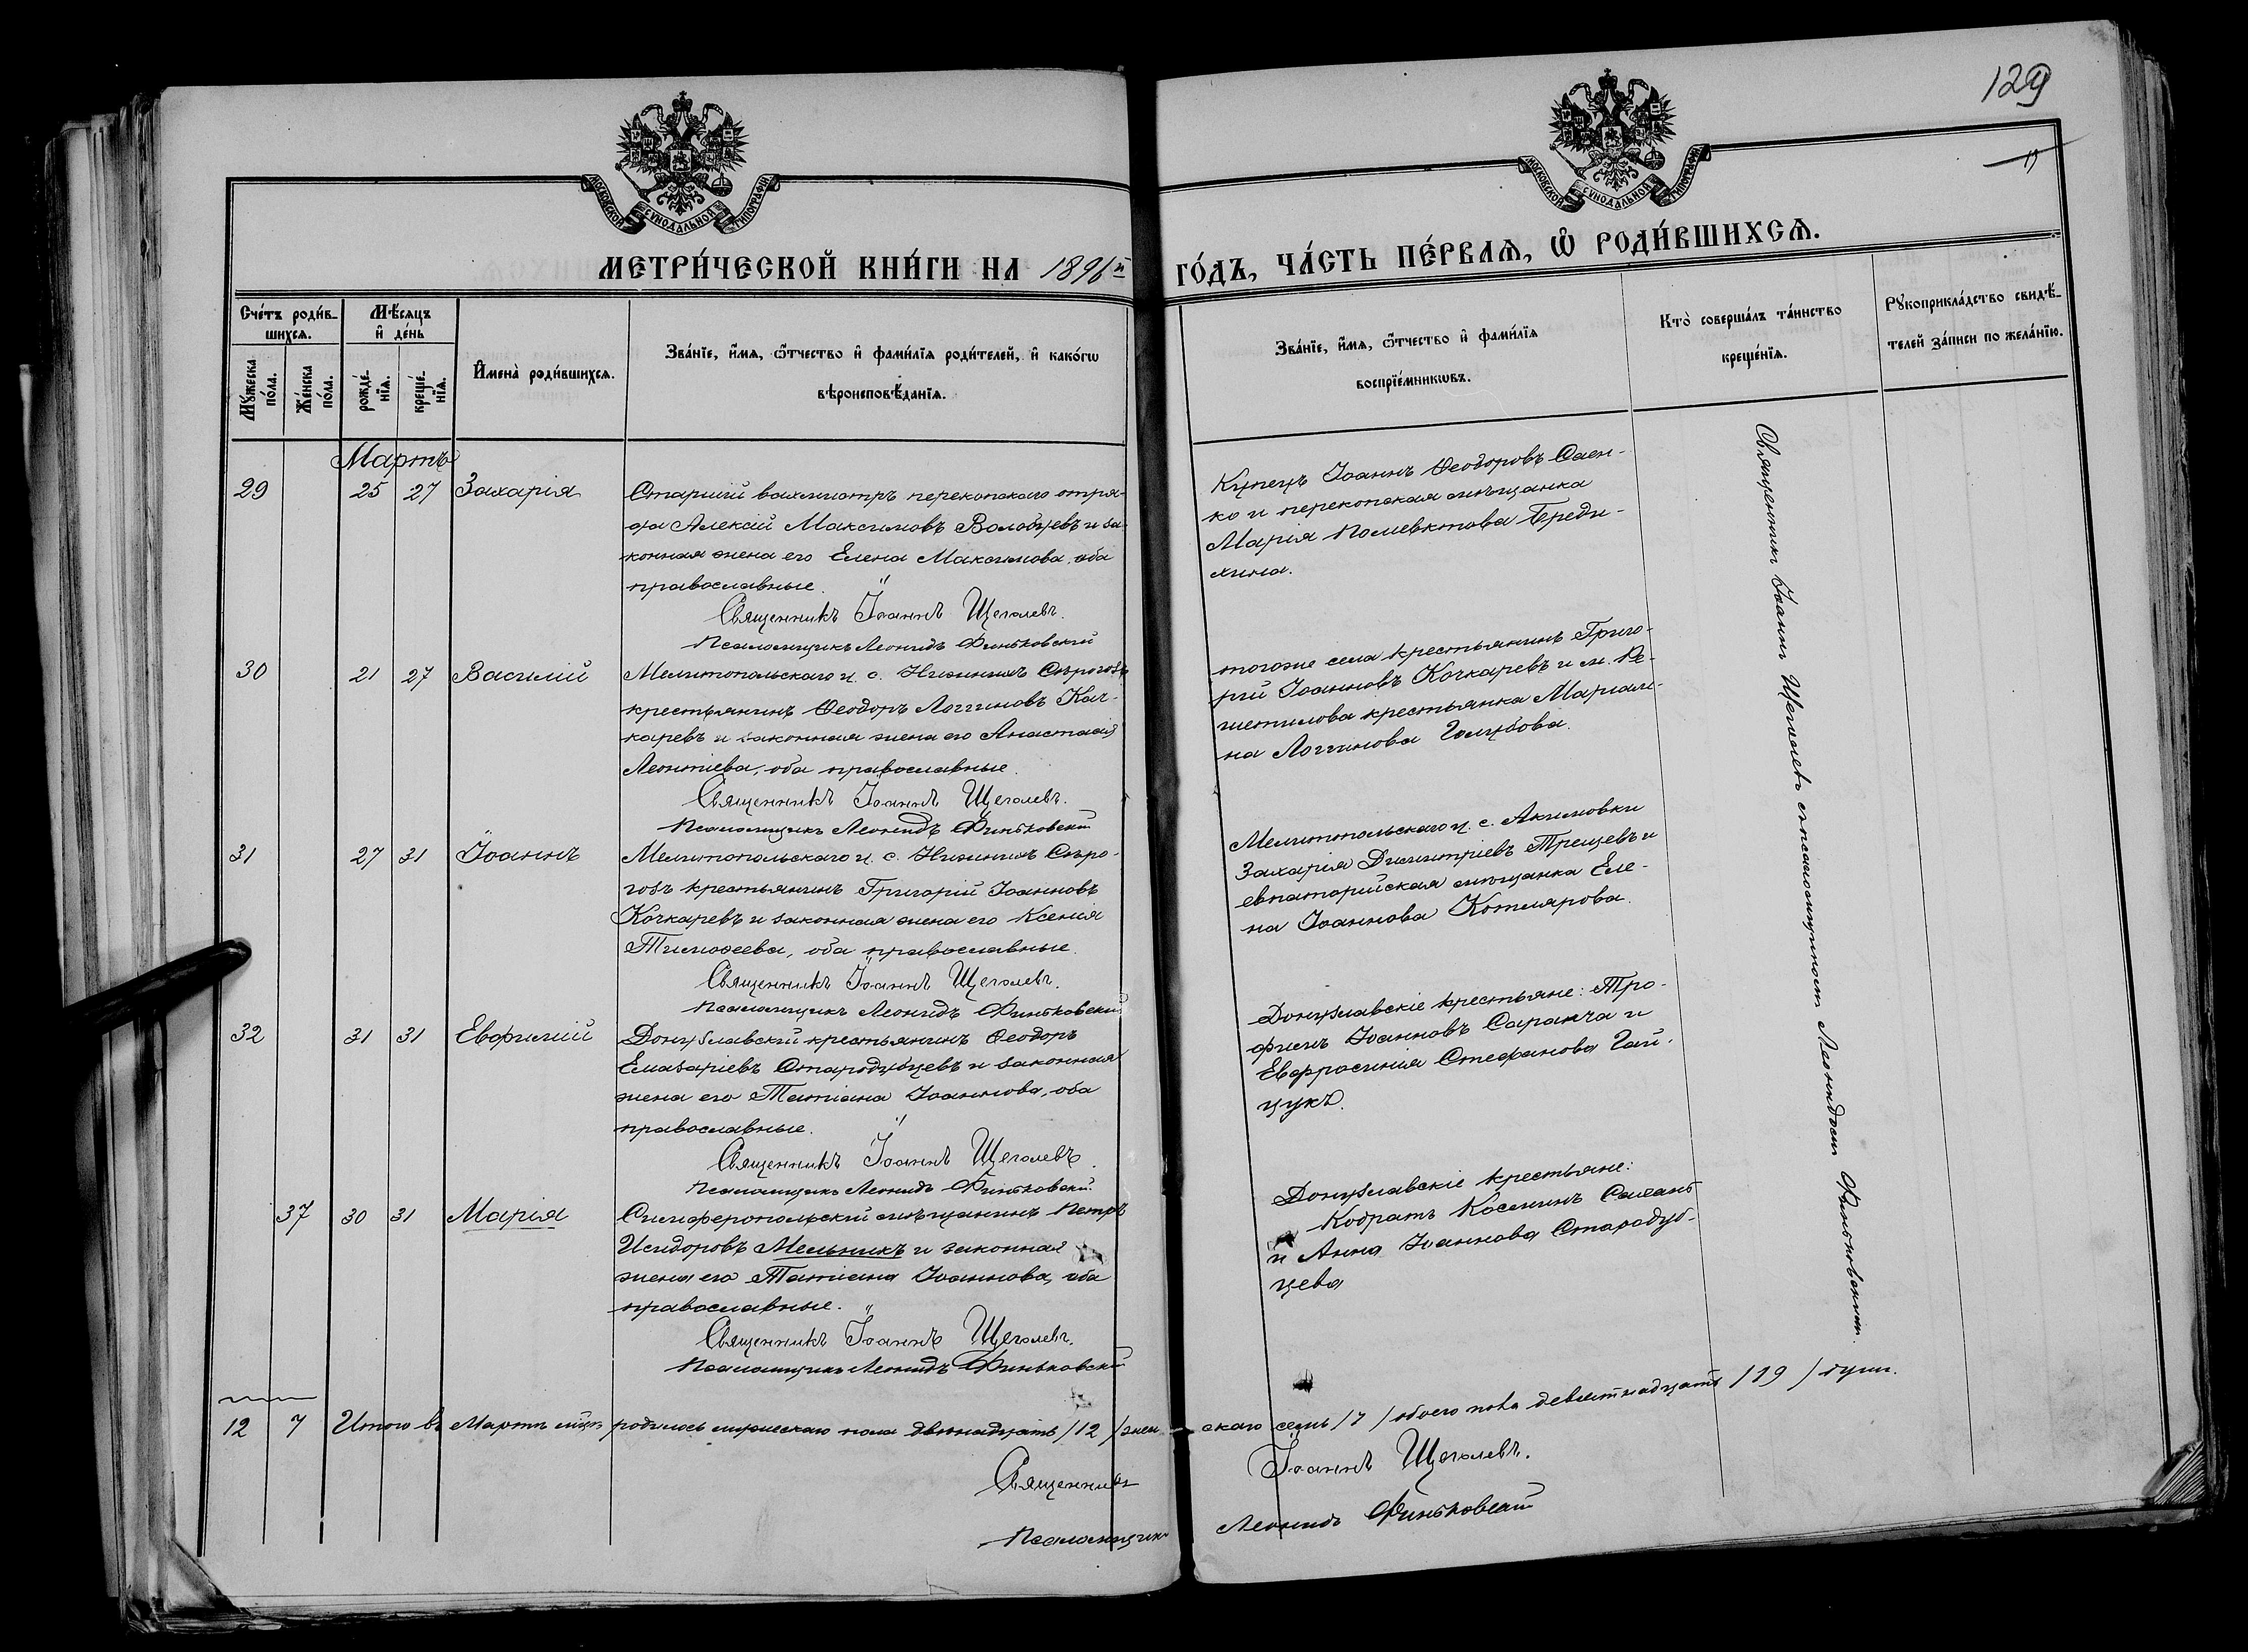 129
МОСКОВСКОЙ СѴНОДАЛЬНОЙ ТИПОГРАФІИ
МОСКОВСКОЙ СѴНОДАЛЬНОЙ ТИПОГРАФІИ
МЕТРИ́ЧЕСКОЙ КНИ́ГИ НА 1896й ГО́ДЪ, ЧА́СТЬ ПЕ́РВАѦ, Ѽ РОДИ́ВШИХСѦ.
Сче́тъ роди́вшихсѧ.
Мꙋ́жеска по́ла.
Же́нска по́ла.
Мѣ́сяцъ и҆ де́нь
рожде́нїѧ.
креще́нїѧ.
И҆мена̀ роди́вшихсѧ.
Зва́нїе, и҆́мѧ, ѻ҆́тчество и҆ фами́лїѧ роди́телей, и҆ како́гѡ
вѣроисповѣ́данїѧ.
Зва́нїе, и҆́мѧ, ѻ҆́тчество и҆ фами́лїѧ
воспрїе́мникѡвъ.
Кто̀ соверша́лъ та́инство
креще́нїѧ.
Рꙋкоприкла́дство свидѣ́-
телей за́писи по жела́нїю.
Мартъ
29 25 27 Захарія
Старшій вахмистръ перекопскаго отря-
да Алексій Максимовъ Володуевъ и за-
конная жена его Елена Максимова, оба
православные.
Священникъ Іоаннъ Щеголевъ.
Псаломщикъ Леонидъ Финьковскій
Купецъ Іоаннъ Ѳеодоровъ Саен-
ко и перекопская мѣщанка
Марія Полиевктова Береди-
хина.
30 21 27 Василій
Мелитопольскаго у. с. Нижнихъ Сѣрогозъ
крестьянинъ Ѳеодоръ Логгиновъ Коч-
каревъ и законная жена его Анастасія
Леонтіева, оба православные.
Священникъ Іоаннъ Щеголевъ.
Псаломщикъ Леонидъ Финьковскій
тогоже села крестьянинъ Григо-
рій Іоанновъ Кочкаревъ и м. Ре-
шетилова крестьянка Маріам-
на Логгинова Голубова.
31 27 31 Іоаннъ
Мелитопольскаго у. с. Нижнихъ Сѣро-
гозъ крестьянинъ Григорій Іоанновъ
Кочкаревъ и законная жена его Ксенія
Тимоѳеева, оба православные.
Священникъ Іоаннъ Щеголевъ.
Псаломщикъ Леонидъ Финьковскій
Мелитопольскаго у. с. Акимовки
Захарія Димитріевъ Трещевъ и
евпаторійская мѣщанка Еле-
на Іоаннова Котлярова.
32 31 31 Евфимій
Донузлавскій крестьянинъ Ѳеодоръ
Елазаріевъ Стародубцевъ и законная
жена его Татіана Іоаннова, оба
православные.
Священникъ Іоаннъ Щеголевъ.
Псаломщикъ Леонидъ Финьковскій
Донузлавскіе крестьяне: Тро-
фимъ Іоанновъ Саранча и
Евфросинія Стефанова Гай-
цукъ.
37 30 31 Марія
Симферопольскій мѣщанинъ Петръ
Исидоровъ Мельникъ и законная
жена его Татіана Іоаннова, оба
православные.
Священникъ Іоаннъ Щеголевъ.
Псаломщикъ Леонидъ Финьковскій
Донузлавскіе крестьяне:
Кодратъ Косминъ
и Анна Іоаннова Стародуб-
цева
Священникъ Іоаннъ Щеголевъ съ псаломщикомъ Леонидомъ Финьковскимъ.
12 7 Итого въ Мартѣ мцѣ родилось мужескаго пола двѣнадцать /12/ жен- скаго семь /7/ обоего пола девятнадцать /19/ душъ.
Священникъ Іоаннъ Щеголевъ.
Псаломщикъ Леонидъ Финьковскій